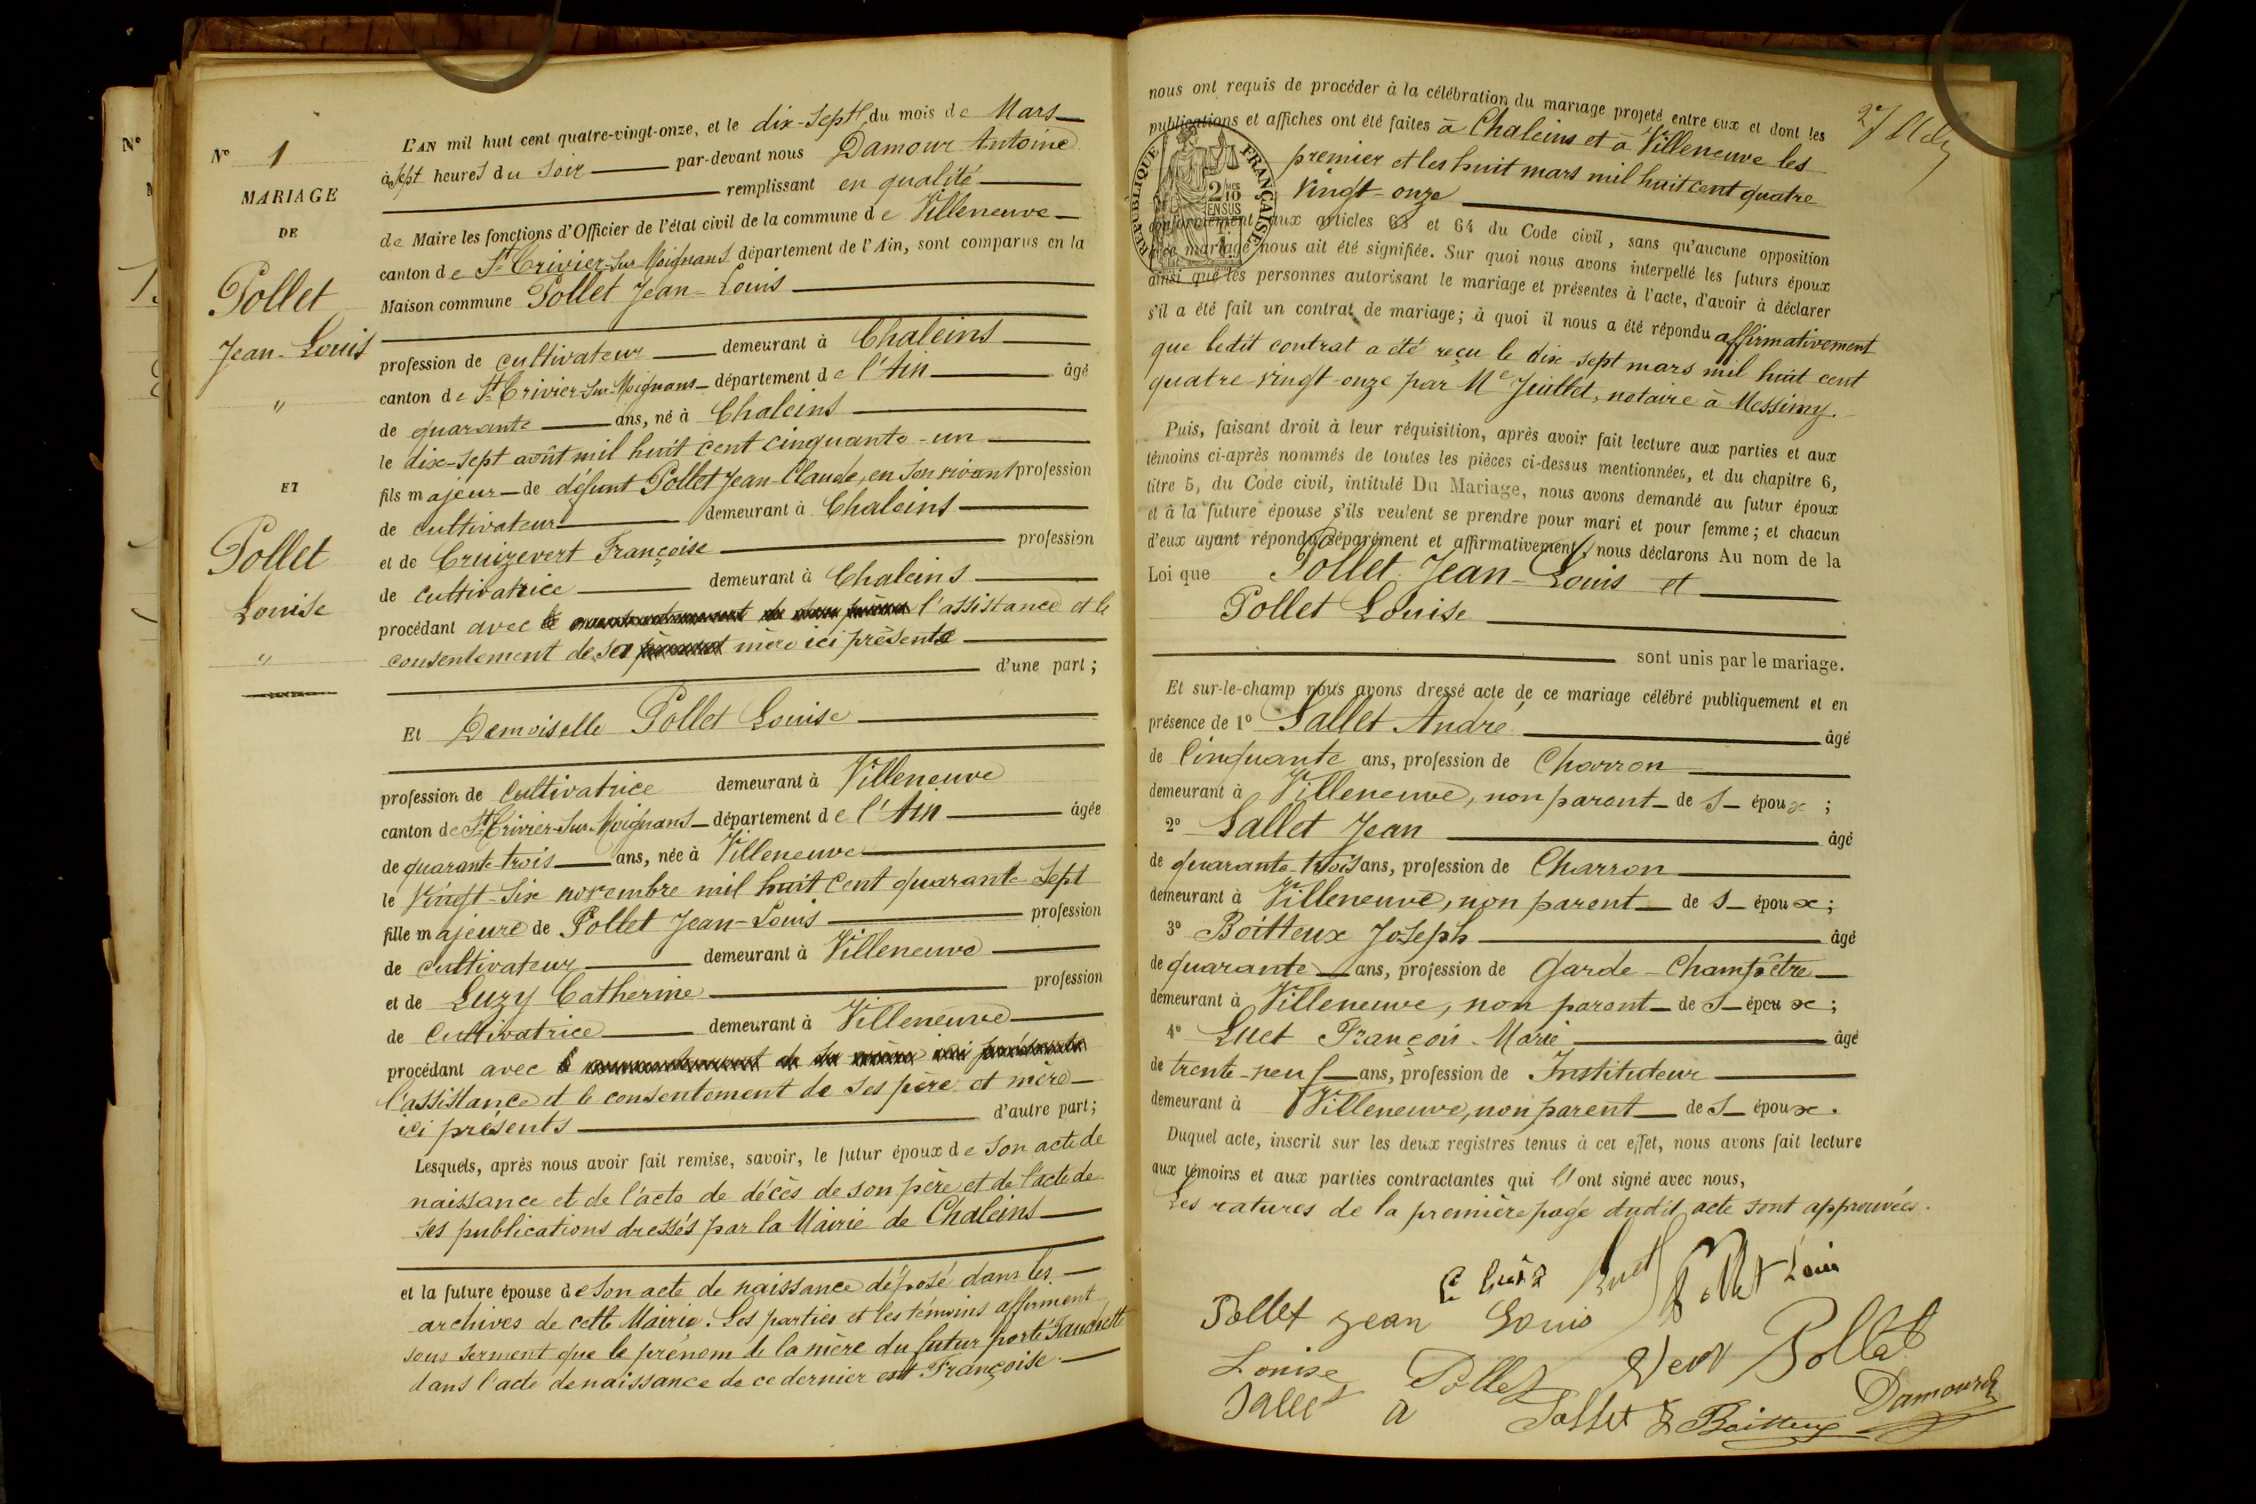 N°
N° 1
MARIAGE
DE
Pollet
Jean-Louis
"
ET
Pollet
Louise
"
L'AN mil huit cent quatre-vingt-onze, et le dix-sept du mois de Mars
à sept heures du soir par-devant nous Damour Antoine
remplissant en qualité
de Maire les fonctions d'Officier de l'état civil de la commune de Villeneuve
canton de St Trivier-sur-Moignans département de l'Ain, sont comparus en la
Maison commune Pollet Jean-Louis
profession de cultivateur demeurant à Chaleins
canton de St Trivier-sur-Moignans département de l'Ain âgé
de quarante ans, né à Chaleins
le dix-sept août mil huit cent cinquante-un
fils majeur de défunt Pollet Jean-Claude, en son vivant profession
de cultivateur demeurant à Chaleins
et de Cruizevert Françoise profession
de cultivatrice demeurant à Chaleins
procédant avec l'assistance et le
consentement de sa mère ici présente
d'une part ;
Et Demoiselle Pollet Louise
profession de cultivatrice demeurant à Villeneuve
canton de St Trivier-sur-Moignans département de l'Ain âgée
de quarante-trois ans, née à Villeneuve
le vingt-six novembre mil huit cent quarante-sept
fille majeure de Pollet Jean-Louis profession
de cultivateur demeurant à Villeneuve
et de Luzy Catherine profession
de cultivatrice demeurant à Villeneuve
procédant avec
l'assistance et le consentement de ses père et mère
ici présents d'autre part ;
Lesquels, après nous avoir fait remise, savoir, le futur époux de son acte de
naissance et de l'acte de décès de son père et de l'acte de
ses publications dressés par la Mairie de Chaleins
et la future épouse de son acte de naissance déposé dans les
archives de cette Mairie. Les parties et les témoins affirment
sous serment que le prénom de la mère du futur porté
dans l'acte de naissance de ce dernier est Françoise.
nous ont requis de procéder à la célébration du mariage projeté entre eux et dont les
publications et affiches ont été faites à Chaleins et à Villeneuve les
premier et les huit mars mil huit cent quatre
vingt-onze
RÉPUBLIQUE FRANÇAISE
2 10
EN SUS
conformément aux articles 63 et 64 du Code civil, sans qu'aucune opposition
à ce mariage nous ait été signifiée. Sur quoi nous avons interpellé les futurs époux
ainsi que les personnes autorisant le mariage et présentes à l'acte, d'avoir à déclarer
s'il a été fait un contrat de mariage ; à quoi il nous a été répondu affirmativement
que ledit contrat a été reçu le dix-sept mars mil huit cent
quatre-vingt-onze par Me Juillet, notaire à Messimy.
Puis, faisant droit à leur réquisition, après avoir fait lecture aux parties et aux
témoins ci-après nommés de toutes les pièces ci-dessus mentionnées, et du chapitre 6,
titre 5, du Code civil, intitulé Du Mariage, nous avons demandé au futur époux
et à la future épouse s'ils veulent se prendre pour mari et pour femme ; et chacun
d'eux ayant répondu séparément et affirmativement, nous déclarons Au nom de la
Loi que Pollet Jean-Louis et
Pollet Louise
sont unis par le mariage.
Et sur-le-champ nous avons dressé acte de ce mariage célébré publiquement et en
présence de 1° Sallet André âgé
de cinquante ans, profession de Charron
demeurant à Villeneuve, non parent de s époux ;
2° Sallet Jean âgé
de quarante-trois ans, profession de Charron
demeurant à Villeneuve, non parent de s époux ;
3° Boitteux Joseph âgé
de quarante ans, profession de Garde-Champêtre
demeurant à Villeneuve, non parent de s époux ;
4° Luet François-Marie âgé
de trente-neuf ans, profession de Instituteur
demeurant à Villeneuve, non parent de s époux.
Duquel acte, inscrit sur les deux registres tenus à cet effet, nous avons fait lecture
aux témoins et aux parties contractantes qui l'ont signé avec nous,
Les ratures de la première page dudit acte sont approuvées.
Luet Pollet Louis
Pollet Jean Louis
Louise Pollet Pollet
Sallet A Sallet J Boitteux Damour A